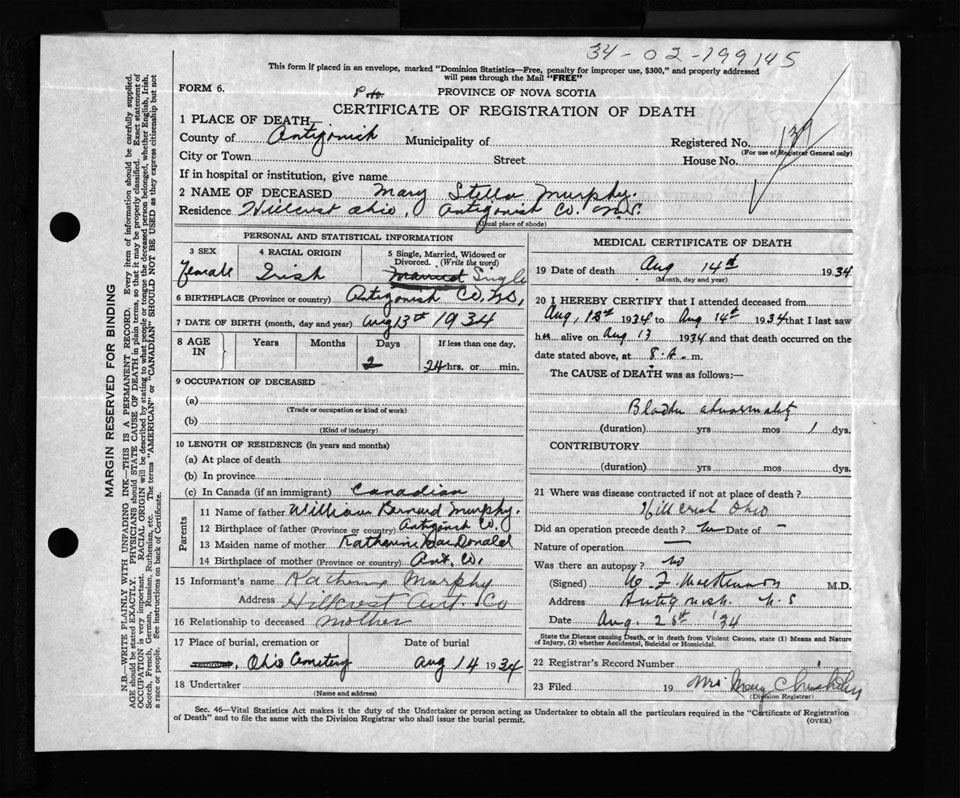 34-02-199145
This form if placed in an envelope, marked "Dominion Statistics—Free, penalty for improper use, $300," and properly addressed
will pass through the Mail "FREE"
FORM 6.
PROVINCE OF NOVA SCOTIA
CERTIFICATE OF REGISTRATION OF DEATH
1 PLACE OF DEATH,
County of Antigonish Municipality of Registered No. 139
(For use of Registrar General only)
City or Town Street House No.
If in hospital or institution, give name
2 NAME OF DECEASED Mary Stella Murphy.
Residence Hillcrest Ohio, Antigonish Co. N.S.
(Usual place of abode)
PERSONAL AND STATISTICAL INFORMATION
3 SEX
Female
4 RACIAL ORIGIN
Irish
5 Single, Married, Widowed or
Divorced. (Write the word)
Married Single
6 BIRTHPLACE (Province or country) Antigonish Co. N.S.
7 DATE OF BIRTH (month, day and year) Aug 13th 1934
8 AGE IN Years Months Days If less than one day,
2 24 hrs. or min.
9 OCCUPATION OF DECEASED
(a)
(Trade or occupation or kind of work)
(b)
(Kind of industry)
10 LENGTH OF RESIDENCE (in years and months)
(a) At place of death
(b) In province
(c) In Canada (if an immigrant) Canadian
Parents
11 Name of father William Bernard Murphy.
12 Birthplace of father (Province or country) Antigonish Co.
13 Maiden name of mother Katherine MacDonald
14 Birthplace of mother (Province or country) Ant. Co.
15 Informant's name Katherine Murphy
Address Hillcrest Ant. Co
16 Relationship to deceased mother
17 Place of burial, cremation or Date of burial
, Ohio Cemetery Aug 14 1934
18 Undertaker
(Name and address)
MEDICAL CERTIFICATE OF DEATH
19 Date of death Aug 14th 1934
(Month, day and year)
20 I HEREBY CERTIFY that I attended deceased from
Aug, 13th 1934 to Aug 14th 1934 that I last saw
her alive on Aug 13 1934 and that death occurred on the
date stated above, at 8. A. m.
The CAUSE of DEATH was as follows:—
Bladder abnormality
(duration) yrs mos 1 dys.
CONTRIBUTORY
(duration) yrs mos dys.
21 Where was disease contracted if not at place of death?
Hillcrest Ohio
Did an operation precede death? no Date of –
Nature of operation —
Was there an autopsy? no
(Signed) W F M.D.
Address Antigonish. N.S
Date Aug. 28th '34
State the Disease causing Death, or in death from Violent Causes, state (1) Means and Nature
of Injury, (2) whether Accidental, Suicidal or Homicidal.
22 Registrar's Record Number
23 Filed 19 Mrs Mary Chisholm
(Division Registrar)
Sec. 46—Vital Statistics Act makes it the duty of the Undertaker or person acting as Undertaker to obtain all the particulars required in the "Certificate of Registration
of Death" and to file the same with the Division Registrar who shall issue the burial permit.
(OVER)
MARGIN RESERVED FOR BINDING
N.B.—WRITE PLAINLY WITH UNFADING INK—THIS IS A PERMANENT RECORD. Every item of information should be carefully supplied.
AGE should be stated EXACTLY. PHYSICIANS should STATE CAUSE OF DEATH in plain terms, so that it may be properly classified. Exact statement of
OCCUPATION is very important. RACIAL ORIGIN will be described by stating to what people or tongue the deceased person belonged, whether English, Irish,
Scotch, French, German, Russian, Ruthenian, etc. The terms "AMERICAN" or "CANADIAN" SHOULD NOT BE USED as they express citizenship but not
a race or people. See instructions on back of Certificate.